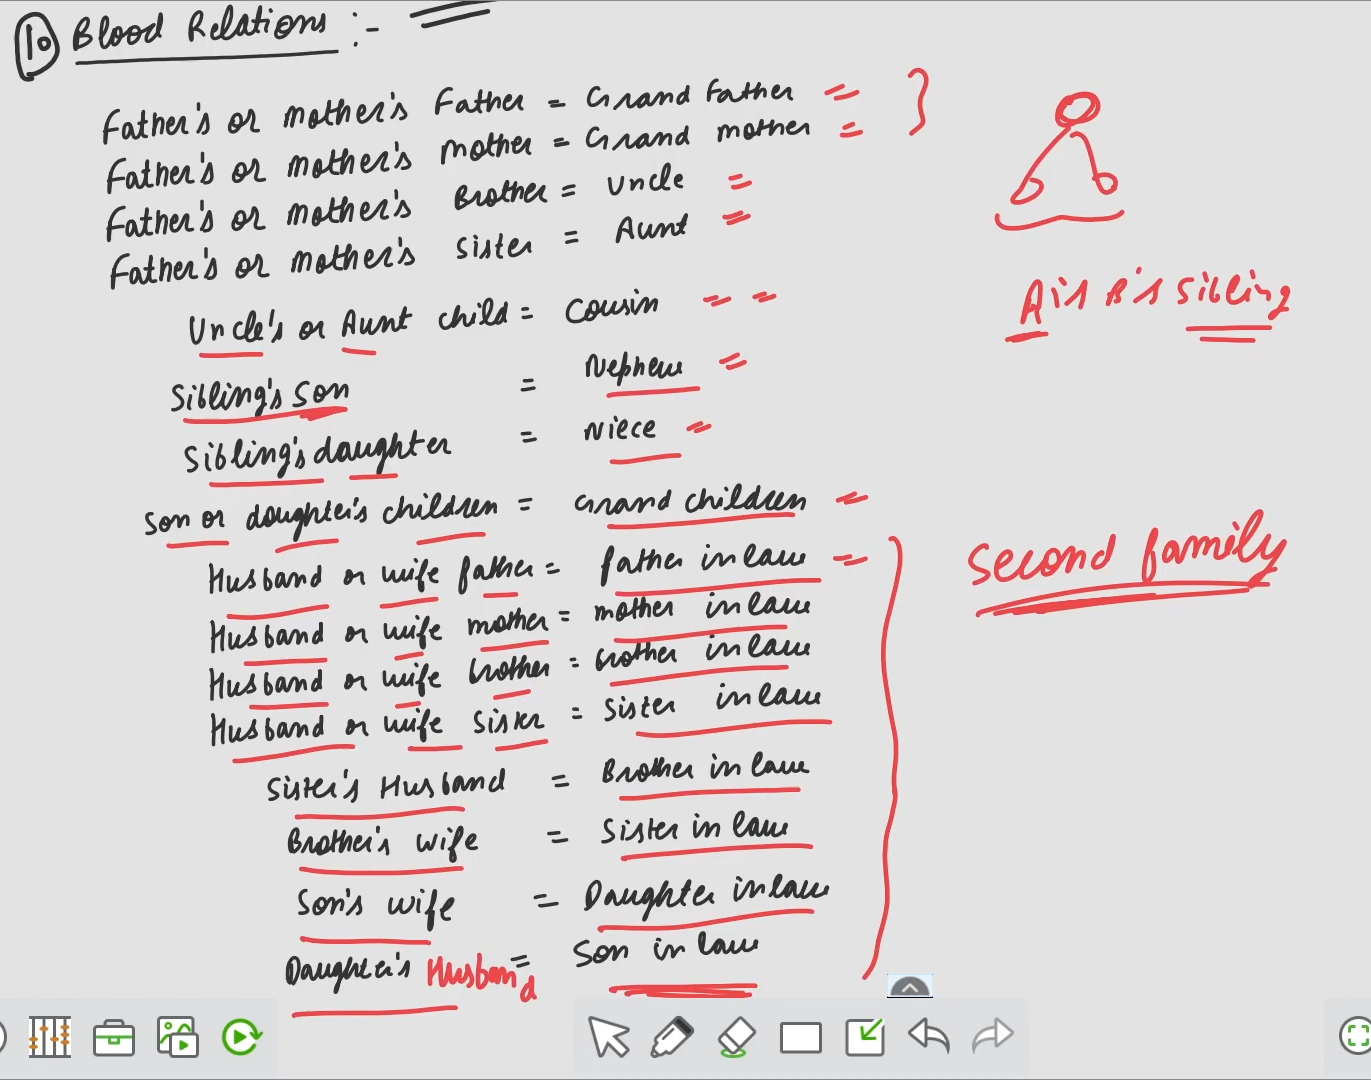 10 Blood Relations :-
Father's or mother's Father = Grand Father
Father's or mother's mother = Grand mother
Father's or mother's Brother = Uncle
Father's or mother's Sister = Aunt
Uncle's or Aunt child = Cousin
A is B's Sibling
Sibling's Son = Nephew
Sibling's daughter = Niece
Son or daughter's children = Grand children
Second family
Husband or wife father = father in law
Husband or wife mother = mother in law
Husband or wife brother = brother in law
Husband or wife Sister = Sister in law
Sister's Husband = Brother in law
Brother's wife = Sister in law
Son's wife = Daughter in law
Daughter's Husband = Son in law